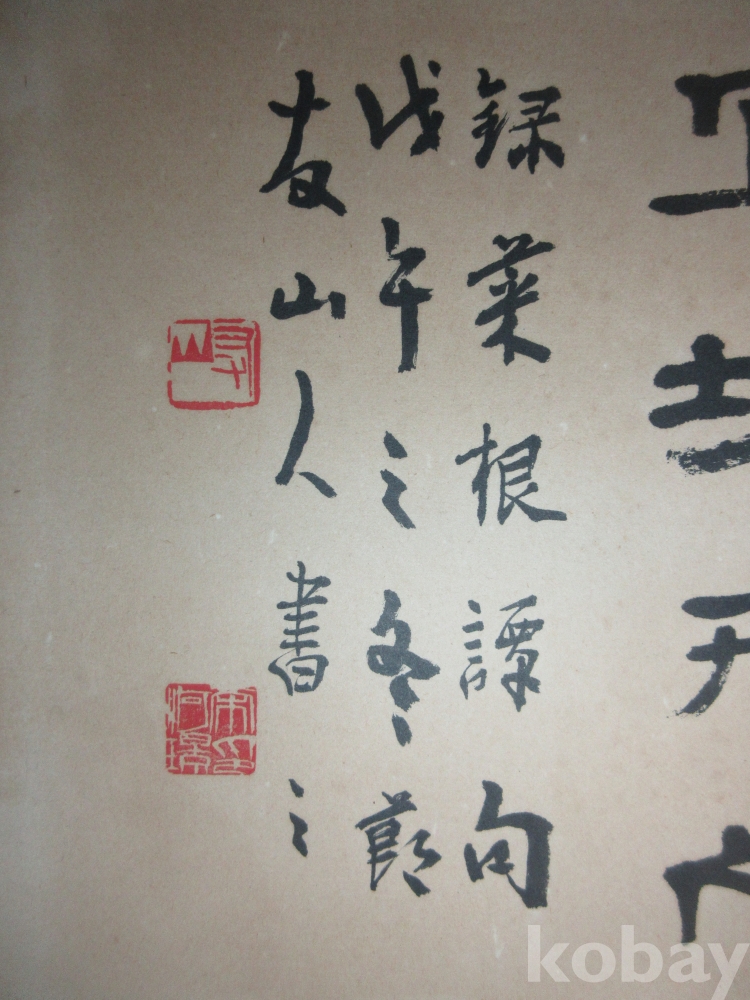 録菜根譚句
戊午之冬節
友山人書之
友山
kobay